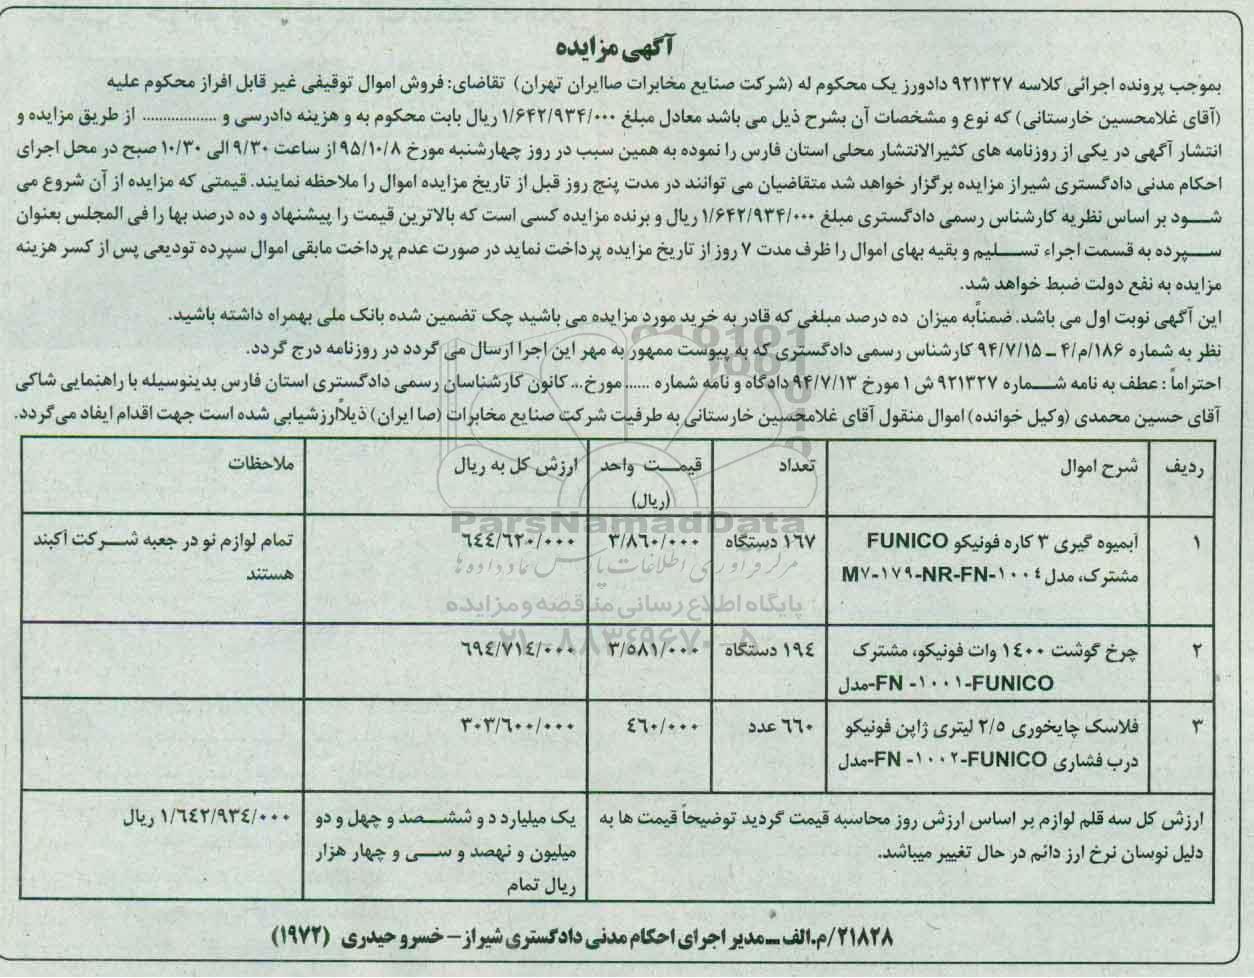 آگهی مزایده
بموجب پرونده اجرائی کلاسه ۹۲۱۳۲۷ دادورز یک محکوم له (شرکت صنایع مخابرات صاایران تهران) تقاضای: فروش اموال توقیفی غیر قابل افراز محکوم علیه
(آقای غلامحسین خارستانی) که نوع و مشخصات آن بشرح ذیل می باشد معادل مبلغ ۱/۶۴۲/۹۳۴/۰۰۰ ریال بابت محکوم به و هزینه دادرسی و .................. از طریق مزایده و
انتشار آگهی در یکی از روزنامه های کثیرالانتشار محلی استان فارس را نموده به همین سبب در روز چهارشنبه مورخ ۹۵/۱۰/۸ از ساعت ۹/۳۰ الی ۱۰/۳۰ صبح در محل اجرای
احکام مدنی دادگستری شیراز مزایده برگزار خواهد شد متقاضیان می توانند در مدت پنج روز قبل از تاریخ مزایده اموال را ملاحظه نمایند. قیمتی که مزایده از آن شروع می
شود بر اساس نظریه کارشناس رسمی دادگستری مبلغ ۱/۶۴۲/۹۳۴/۰۰۰ ریال و برنده مزایده کسی است که بالاترین قیمت را پیشنهاد و ده درصد بها را فی المجلس بعنوان
سپرده به قسمت اجراء تسلیم و بقیه بهای اموال را ظرف مدت ۷ روز از تاریخ مزایده پرداخت نماید در صورت عدم پرداخت مابقی اموال سپرده تودیعی پس از کسر هزینه
مزایده به نفع دولت ضبط خواهد شد.
این آگهی نوبت اول می باشد. ضمنابه میزان ده درصد مبلغی که قادر به خرید مورد مزایده می باشید چک تضمین شده بانک ملی بهمراه داشته باشید.
نظر به شماره ۱۸۶/م/۴ ـ ۹۴/۷/۱۵ کارشناس رسمی دادگستری که به پیوست ممهور به مهر این اجرا ارسال می گردد در روزنامه درج گردد.
احتراماً : عطف به نامه شماره ۹۲۱۳۲۷ ش ۱ مورخ ۹۴/۷/۱۳ دادگاه و نامه شماره ...... مورخ... کانون کارشناسان رسمی دادگستری استان فارس بدینوسیله با راهنمایی شاکی
آقای حسین محمدی (وکیل خوانده) اموال منقول آقای غلامحسین خارستانی به طرفیت شرکت صنایع مخابرات (صا ایران) ذیلاًارزشیابی شده است جهت اقدام ایفاد می‌گردد.
ردیف شرح اموال تعداد قیمت واحد (ریال) ارزش کل به ریال ملاحظات
۱ آبمیوه گیری ۳ کاره فونیکو FUNICO ۱۶۷ دستگاه ۳/۸۶۰/۰۰۰ ۶۴۴/۶۲۰/۰۰۰ تمام لوازم نو در جعبه شرکت آکبند
مشترک، مدل M۷-۱۷۹-NR-FN-۱۰۰۴ هستند
۲ چرخ گوشت ۱۴۰۰ وات فونیکو، مشترک ۱۹۴ دستگاه ۳/۵۸۱/۰۰۰ ۶۹۴/۷۱۴/۰۰۰
FN -۱۰۰۱-FUNICO-مدل
۳ فلاسک چایخوری ۲/۵ لیتری ژاپن فونیکو ۶۶۰ عدد ۴۶۰/۰۰۰ ۳۰۳/۶۰۰/۰۰۰
درب فشاری FN -۱۰۰۲-FUNICO-مدل
ارزش کل سه قلم لوازم بر اساس ارزش روز محاسبه قیمت گردید توضیحاً قیمت ها به یک میلیارد و ششصد و چهل و دو ۱/۶۴۲/۹۳۴/۰۰۰ ریال
دلیل نوسان نرخ ارز دائم در حال تغییر میباشد. میلیون و نهصد و سی و چهار هزار
ریال تمام
۲۱۸۲۸/م.الف ـ مدیر اجرای احکام مدنی دادگستری شیراز – خسرو حیدری (۱۹۷۲)
ParsNamadData
مرکز فرآوری اطلاعات پارس نماد داده ها
پایگاه اطلاع رسانی مناقصه و مزایده
۰۲۱-۸۸۳۴۹۶۷۰-۵